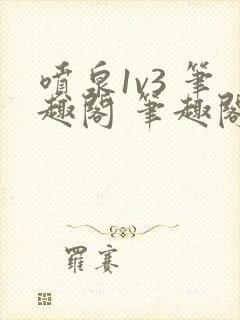 噴泉1v3 筆
趣閣 筆趣閣
羅賽